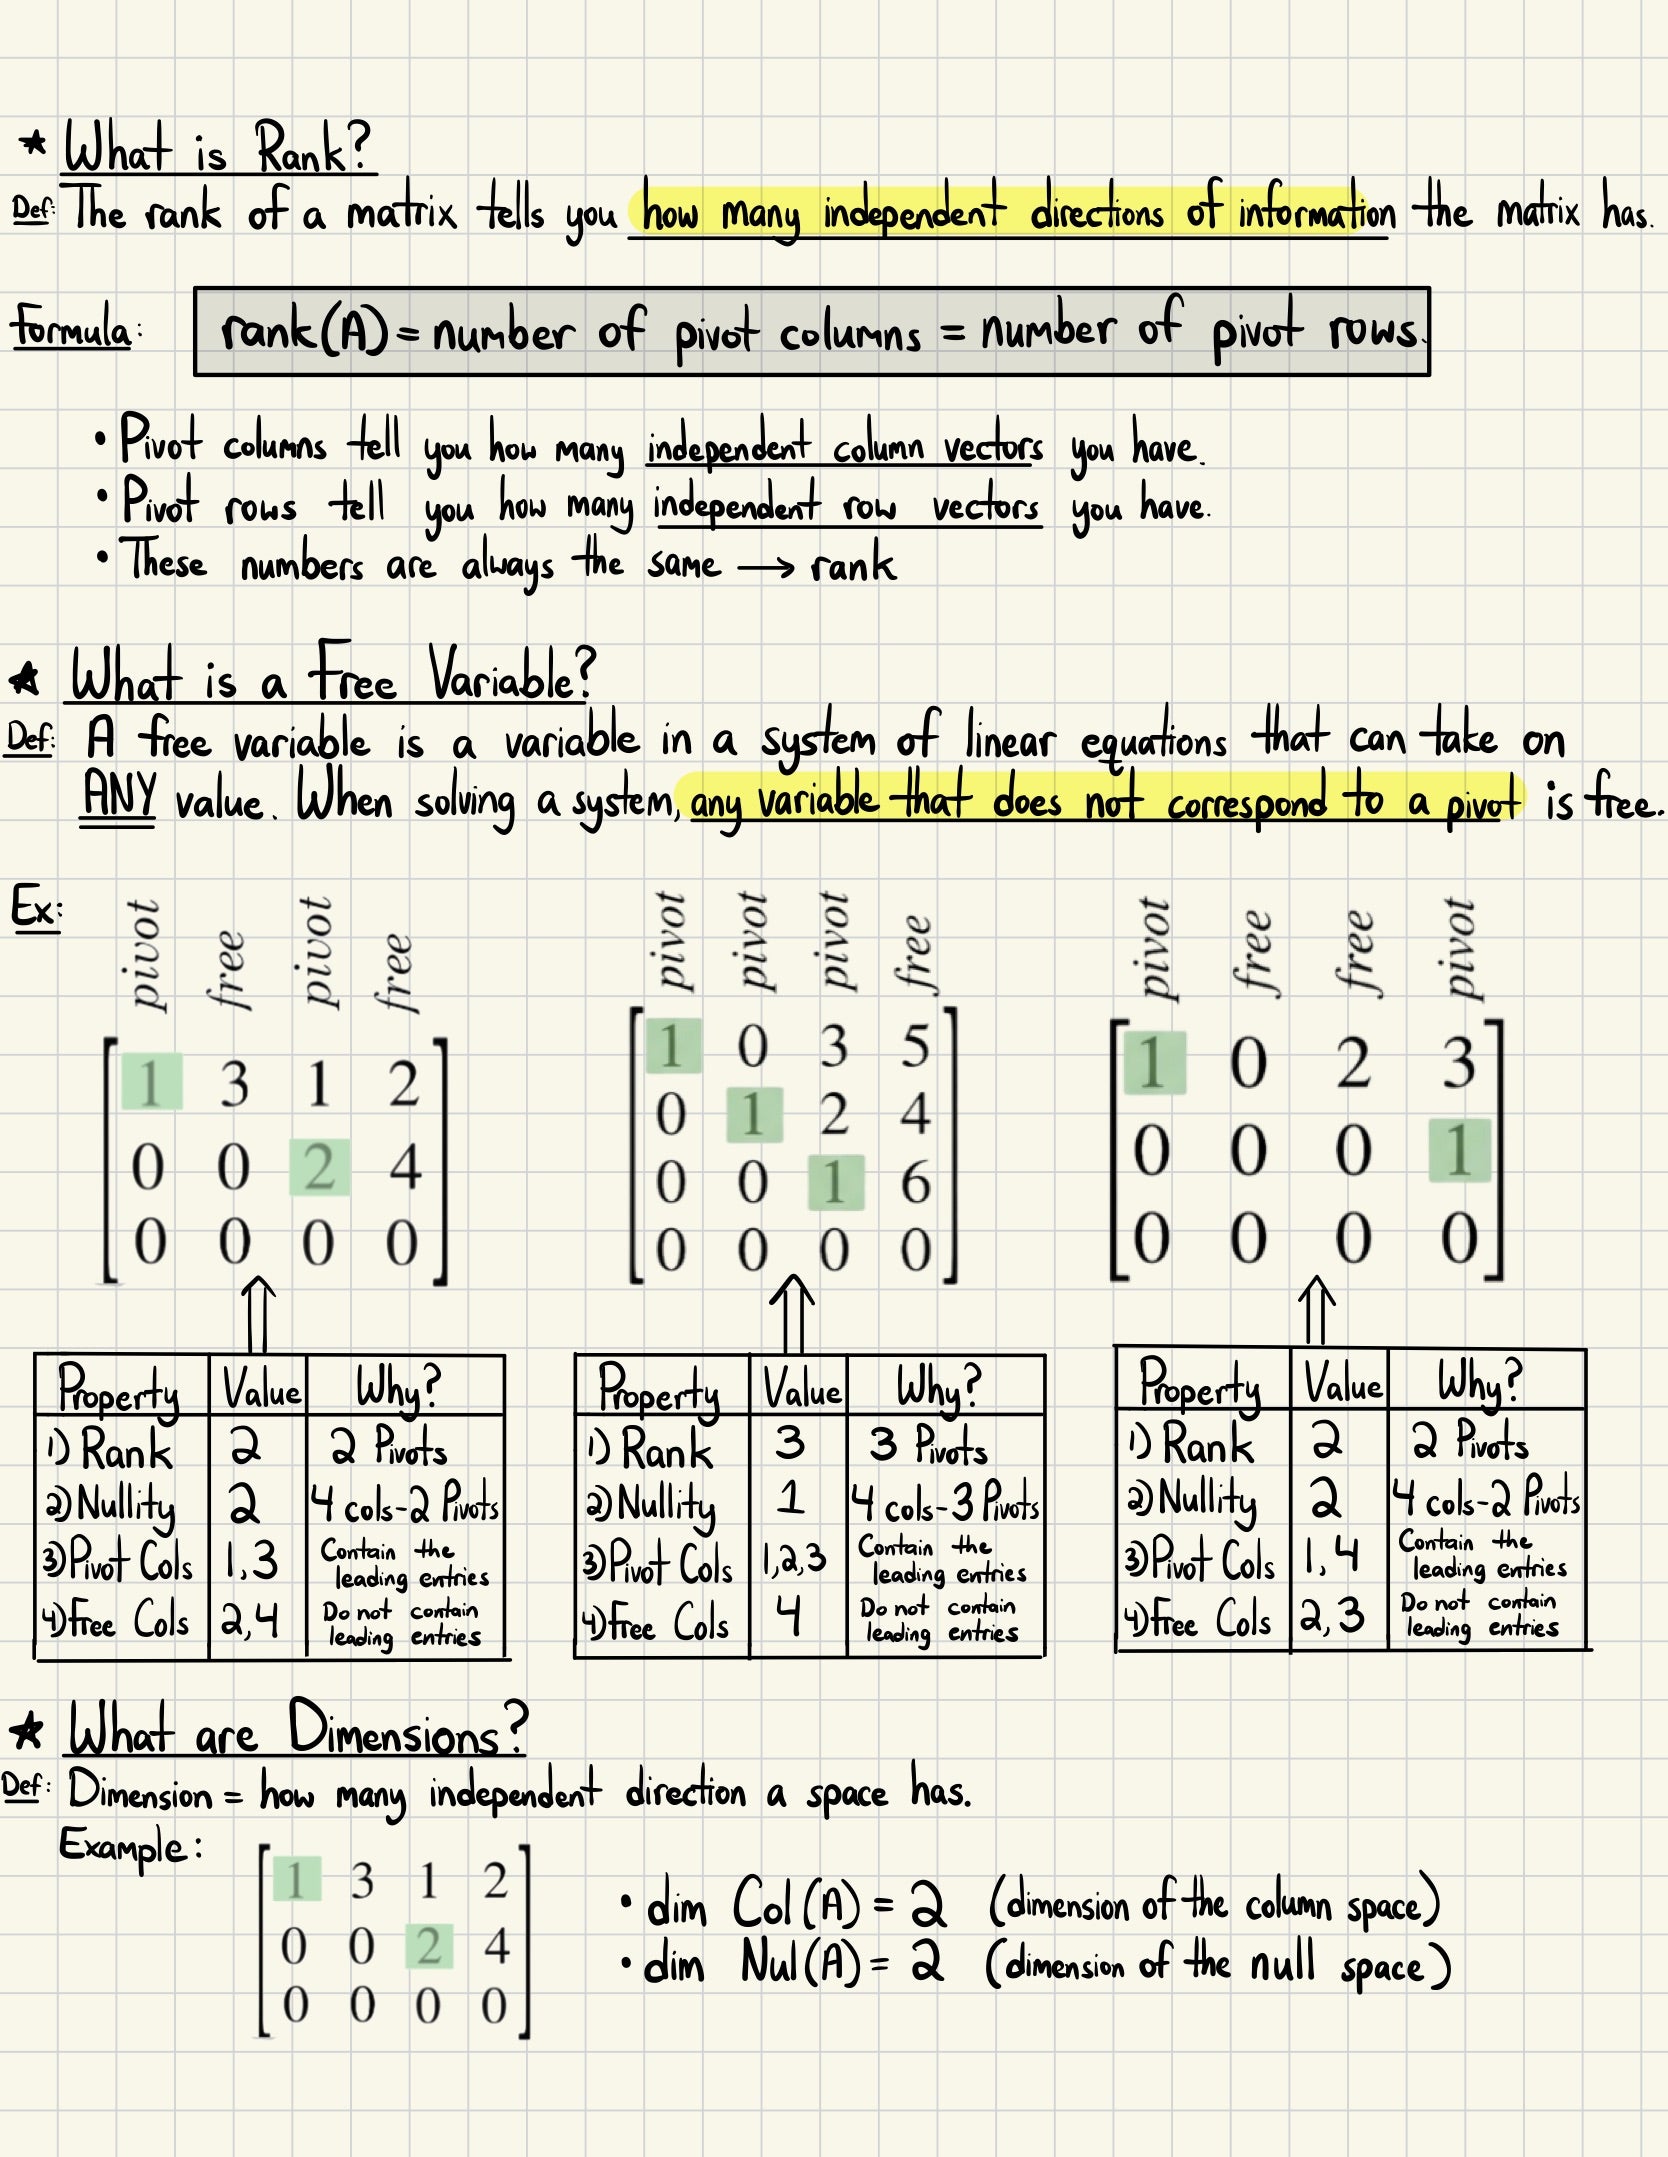 ★ What is Rank?
Def: The rank of a matrix tells you how many independent directions of information the matrix has.
Formula: rank(A) = number of pivot columns = number of pivot rows.
• Pivot columns tell you how many independent column vectors you have.
• Pivot rows tell you how many independent row vectors you have.
• These numbers are always the same → rank
★ What is a Free Variable?
Def: A free variable is a variable in a system of linear equations that can take on
ANY value. When solving a system, any variable that does not correspond to a pivot is free.
Ex:
pivot free pivot free
1 3 1 2
0 0 2 4
0 0 0 0
pivot pivot pivot free
1 0 3 5
0 1 2 4
0 0 1 6
0 0 0 0
pivot free free pivot
1 0 2 3
0 0 0 1
0 0 0 0
Property Value Why?
1) Rank 2 2 Pivots
2) Nullity 2 4 cols-2 Pivots
3) Pivot Cols 1,3 Contain the
leading entries
4) Free Cols 2,4 Do not contain
leading entries
Property Value Why?
1) Rank 3 3 Pivots
2) Nullity 1 4 cols-3 Pivots
3) Pivot Cols 1,2,3 Contain the
leading entries
4) Free Cols 4 Do not contain
leading entries
Property Value Why?
1) Rank 2 2 Pivots
2) Nullity 2 4 cols-2 Pivots
3) Pivot Cols 1,4 Contain the
leading entries
4) Free Cols 2,3 Do not contain
leading entries
★ What are Dimensions?
Def: Dimension = how many independent direction a space has.
Example:
1 3 1 2
0 0 2 4
0 0 0 0
• dim Col(A) = 2 (dimension of the column space)
• dim Nul(A) = 2 (dimension of the null space)